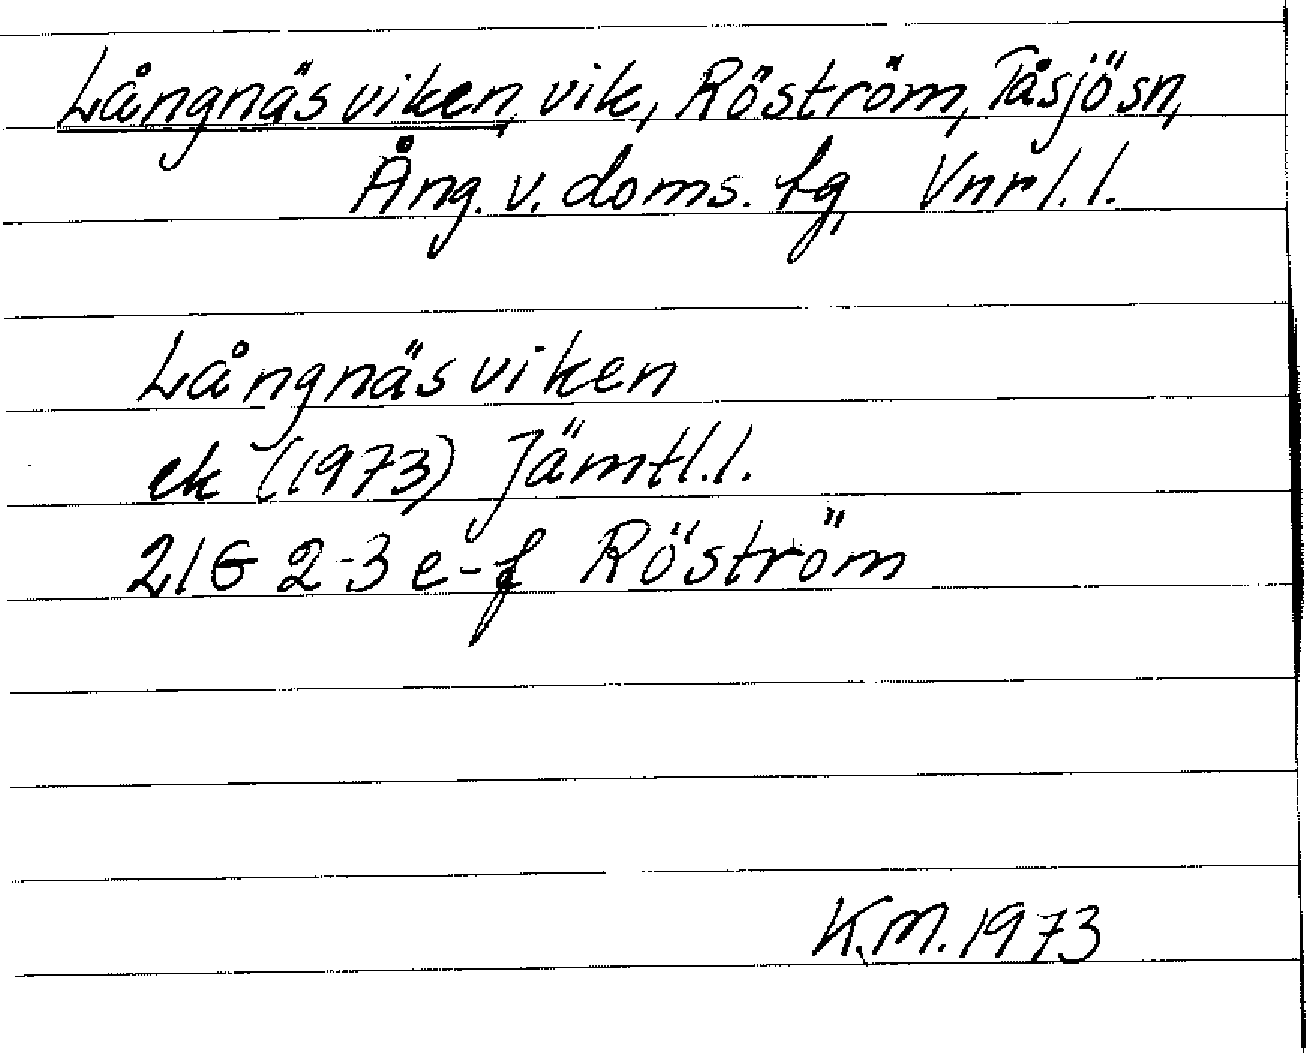 Långnäsviken, vik, Röström, Tåsjö sn,
Ång. v. doms. fg, Vnrl. l.
Långnäsviken
ek (1973) Jämtl. l.
21G 2-3 e-f Röström
K.M. 1973